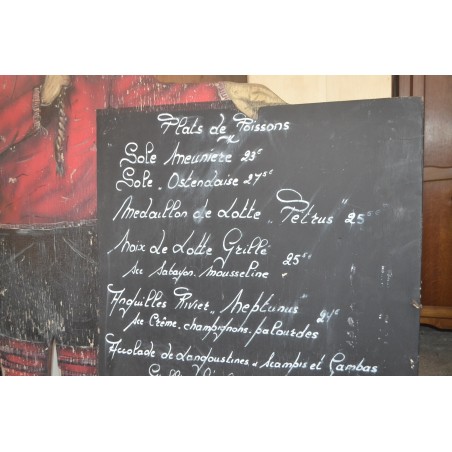 Plats de Poissons
Sole Meunière 23€
Sole Ostendaise 27€
Medaillon de Lotte "Petrus" 25€
Noix de Lotte Grillé 25€
sur Sabayon Mousseline
Anguilles Rivier "Neptunus"
sur Crème, champignons, palourdes
Accolade de Langoustines, Scampis et Gambas